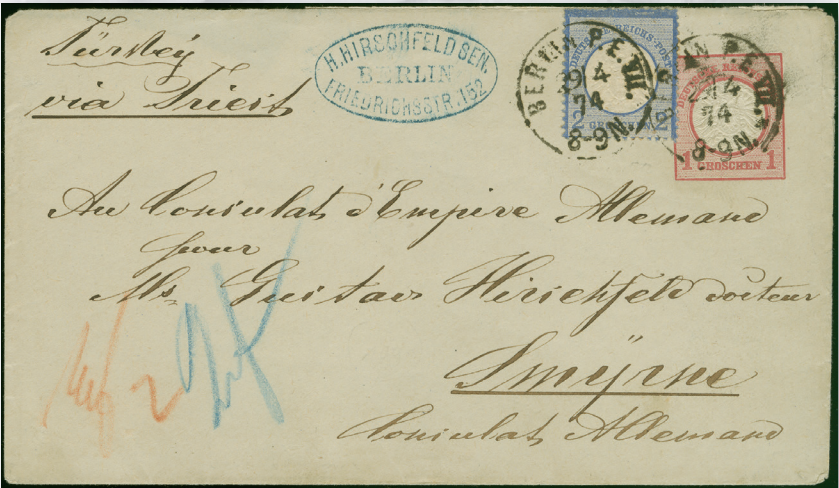 Türkey
via Triest
H. HIRSCHFELD SEN.
BERLIN
FRIEDRICHSSTR. 152
BERLIN P.E. VII.
29 4
74
8-9N.
DEUTSCHE REICHS-POST
2 GROSCHEN 2
BERLIN P.E. VII.
29 4
74
8-9N.
DEUTSCHE REICHS
1 GROSCHEN 1
Au Consulat d'Empire Allemand
pour
Ms. Gustav Hirschfeld docteur
Smÿrne
Consulat Allemand
2